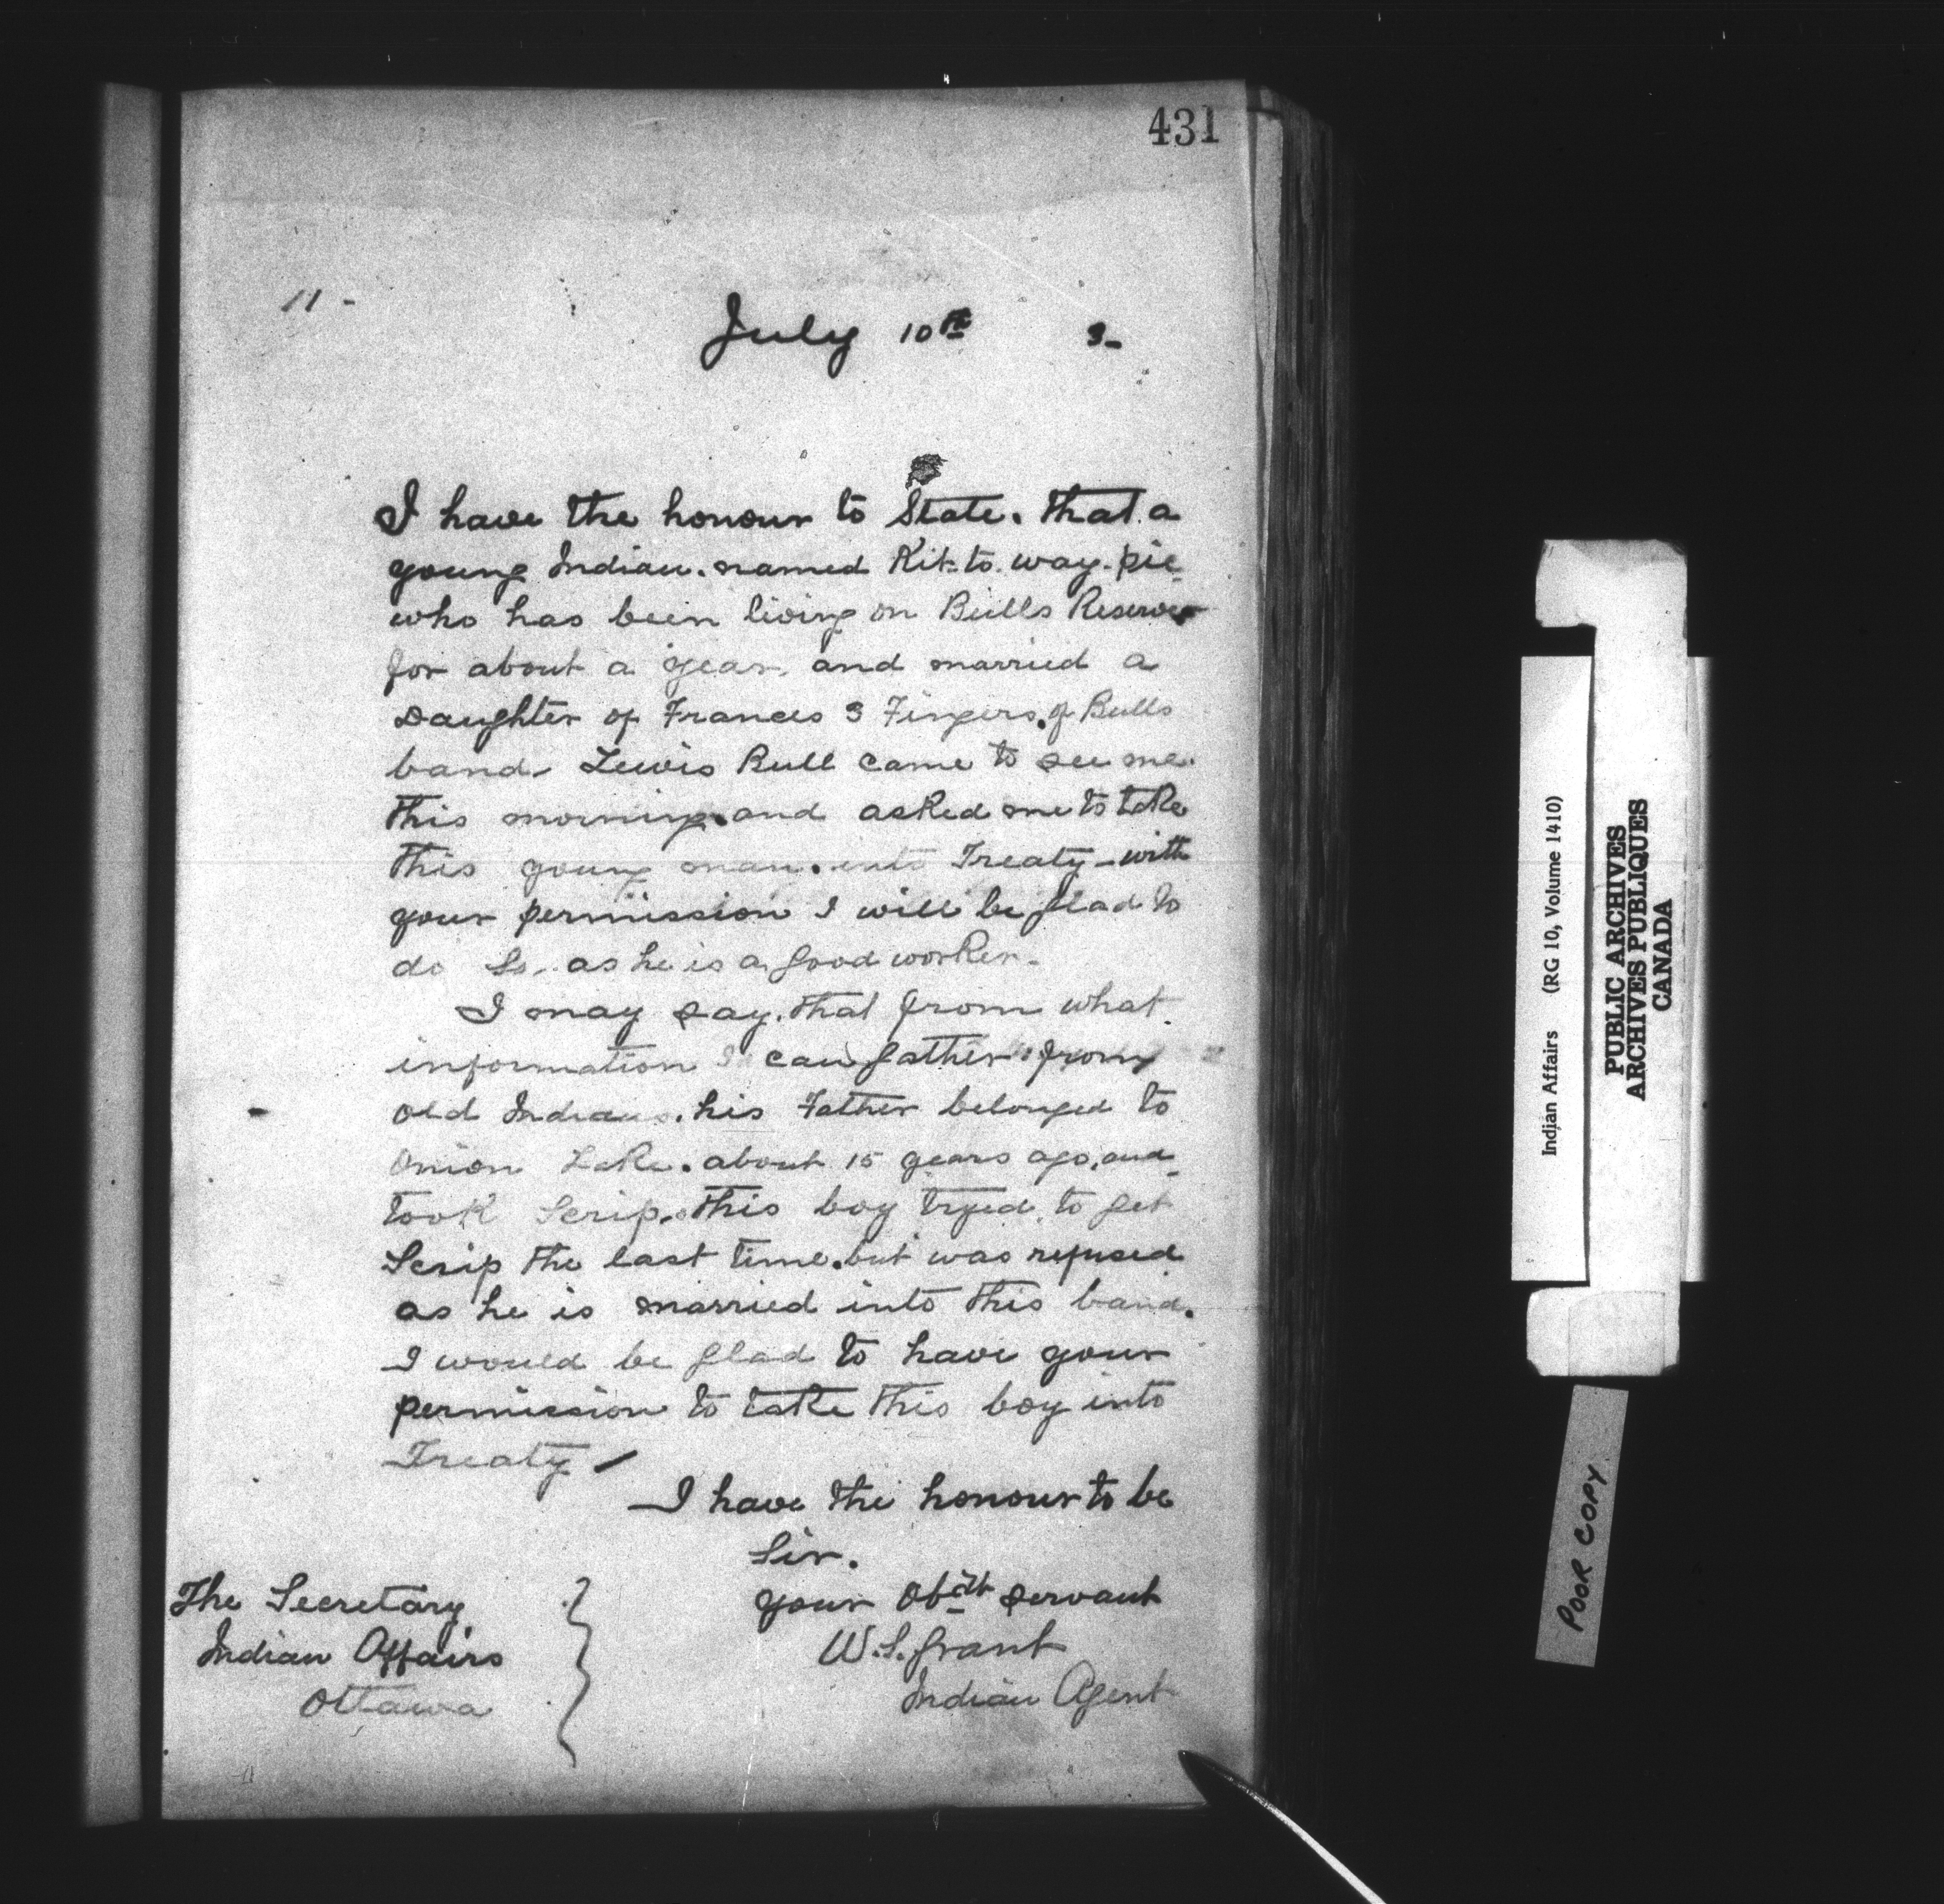 431
11 -
July 10th 3-
I have the honour to State. that a
young Indian. named Kit-to-way-pie
who has been living on Bulls Reserve
for about a year, and married a
Daughter of Frances 3 Fingers, of Bulls
band. Lewis Bull came to see me.
this morning. and asked me to take
this young man. into Treaty - with
your permission I will be glad to
do So. as he is a good worker.
I may say. that from what
information I can gather from
old Indians. his Father belonged to
Onion Lake. about 15 years ago, and
took Scrip. this boy tryed to get
Scrip the last time. but was refused
as he is married into this band.
I would be glad to have your
permission to take this boy into
Treaty /
I have the honour to be
Sir.
your Obdt servant
W.S. Grant
Indian Agent
The Secretary
Indian Affairs
Ottawa
Indian Affairs (RG 10, Volume 1410)
PUBLIC ARCHIVES
ARCHIVES PUBLIQUES
CANADA
POOR COPY